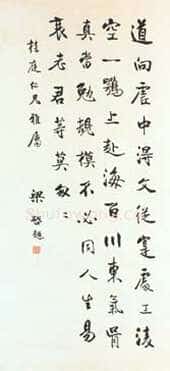 道向虛中得文從寔處工凌
空一鶚上赴海百川東氣骨
真當勉規模不必同人生易
衰老君等莫匆匆
桂庭仁兄雅屬
梁啟超